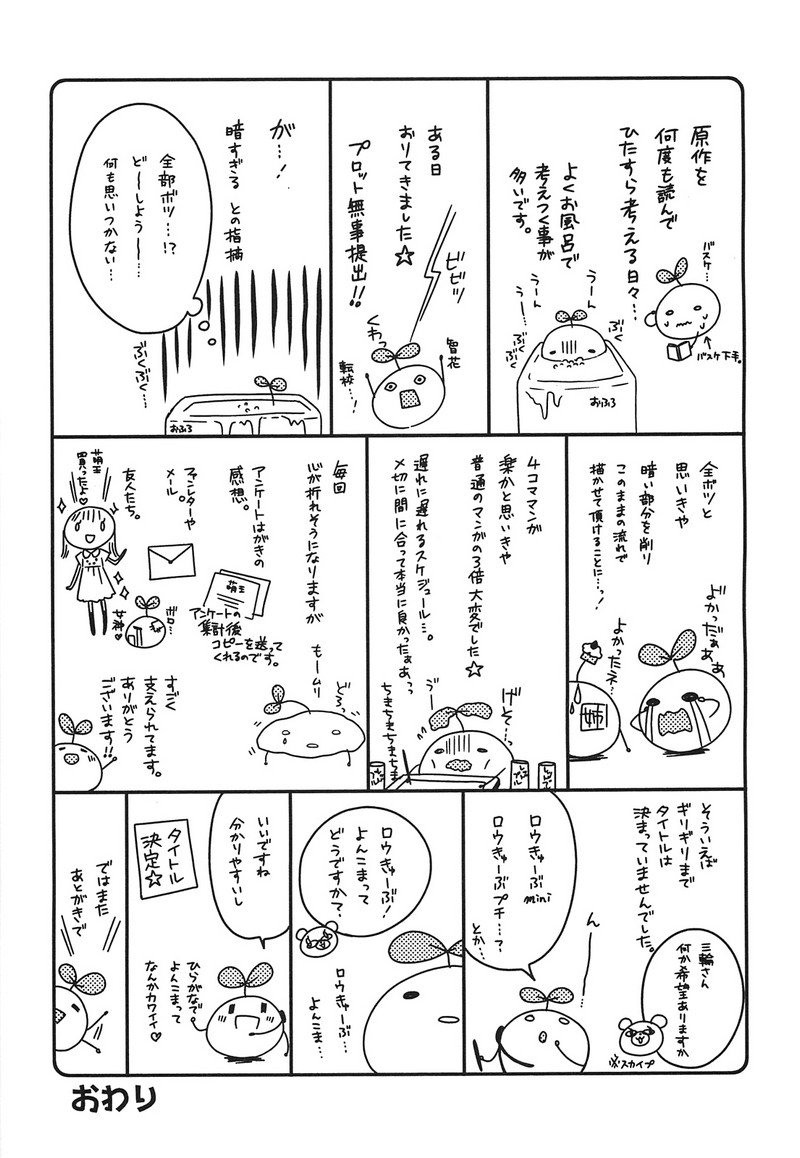 原作を
何度も読んで
ひたすら考える日々…
バスケ…
バスケ下手。
よくお風呂で
考えつく事が
多いです。
うーん
うー…
ぶく
ぶくぶく
おふろ
ある日
おりてきました☆
プロット無事提出!!
ビビッ
くわっ
智花
転校…!
が…!
暗すぎる との指摘
全部ボツ…!?
ど〜しよう〜…
何も思いつかない…
ぶくぶく…
おふろ
全ボツと
思いきや
暗い部分を削り
このままの流れで
描かせて頂けることに…っ!
よかったぁぁぁ
よかったネ…
姉
4コママンガ
楽かと思いきや
普通のマンガの3倍大変でした☆
遅れに遅れるスケジュール…。
〆切に間に合って本当に良かったぁぁっ
げそ…っ
ちまちまちまちまちま
毎回
心が折れそうになりますが
もームリ
どろ〜
アンケートはがきの
感想。
萌王
アンケートの
集計後
コピーを送って
くれるのです。
ファンレターや
メール。
友人たち。
萌王
買ったよ♥
女神♥
ボロ…
すごく
支えられてます。
ありがとう
ございます!!
そういえば
ギリギリまで
タイトルは
決まっていませんでした。
三輪さん
何か希望ありますか
※スカイプ
ん〜
ロウきゅーぶmini
ロウきゅーぶプチ…?
とか…
ロウきゅーぶ!
よんこまって
どうですか?
ロウきゅーぶ
よんこま…
いいですね
分かりやすいし
タイトル
決定☆
ひらがなで
よんこまって
なんかカワイイ♥
ではまた
あとがきで
おわり